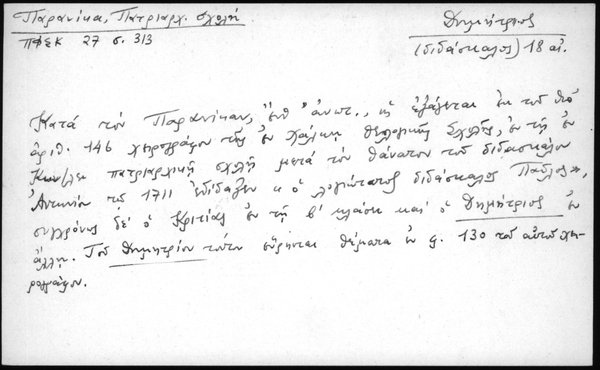 Παρανίκα, Πατριαρχ. σχολή
ΠΦΣΚ 27 σ. 313
Δημήτριος
(διδάσκαλος) 18 αἰ.
Κατά τόν Παρανίκαν, ἔνθ' ἀνωτ., ὡς ἐξάγεται ἐκ τοῦ ὑπό
ἀριθ. 146 χειρογράφου τῆς ἐν Χάλκῃ Θεολογικῆς Σχολῆς, ἐν τῇ ἐν
Κων/λει πατριαρχικῇ σχολῇ μετά τόν θάνατον τοῦ διδασκάλου
Ἀντωνίου τῷ 1711 ἐδίδαξεν "ὁ λογιώτατος διδάσκαλος Παῦλος",
συγχρόνως δέ ὁ Κριτίας ἐν τῇ β' κλάσει καί ὁ Δημήτριος ἐν
ἄλλῃ. Τοῦ Δημητρίου τούτου εὕρηνται θέματα ἐν φ. 130 τοῦ αὐτοῦ χει-
ρογράφου.